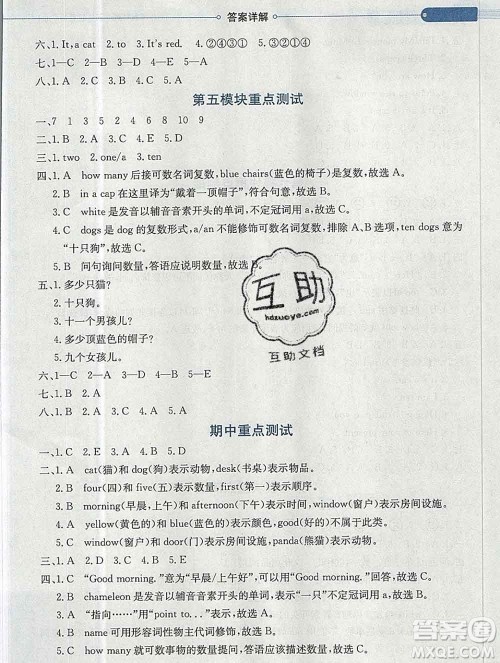 答案详解
六、1. It, a cat 2. to 3. It's red. 4. ②④③① 5. ③②①④
七、1—C 2—B 3—D 4—A 5—E
八、1. A 2. C 3. B 4. B 5. A
第五模块重点测试
一、7 1 3 2 4 6 5 8 10 9
二、1. B 2. A 3. D 4. C
三、1. two 2. one/a 3. ten
四、1. A how many 后接可数名词复数，blue chairs(蓝色的椅子)是复数，故选 A。
2. B in a cap 在这里译为“戴着一顶帽子”，符合句意，故选 B。
3. C white 是发音以辅音音素开头的单词，不定冠词用 a，故选 C。
4. C dogs 是 dog 的复数形式，a/an 不能修饰可数名词复数，排除 A、B 选项，ten dogs 意为
“十只狗”，故选 C。
5. B 问句询问数量，答语应说明数量，故选 B。
五、1. 多少只猫？
2. 十只狗。
3. 十一个男孩儿？
4. 多少顶蓝色的帽子？
5. 九个女孩儿。
六、1—C 2—D 3—A 4—B 5—E
七、1. B 2. A
八、1. C 2. B 3. A
期中重点测试
一、1. C 2. E 3. A 4. D 5. B
二、1. A cat(猫)和 dog(狗)表示动物，desk(书桌)表示物品。
2. B four(四)和 five(五)表示数量，first(第一)表示顺序。
3. B morning(早晨，上午)和 afternoon(下午)表示时间，window(窗户)表示房间设施。
4. A yellow(黄色的)和 blue(蓝色的)表示颜色，good(好的)不属于此类。
5. C window(窗户)和 door(门)表示房间设施，panda(熊猫)表示动物。
三、1. A 2. C 3. B 4. D 5. E
四、1. C “Good morning.”意为“早晨/上午好”，应用“Good morning.”回答，故选 C。
2. C chameleon 是发音以辅音音素开头的单词，不定冠词用 a，故选 C。
3. A “指向……”用“point to...”表示，故选 A。
4. B name 可用形容词性物主代词修饰，故选 B。
5. C how many 就可数事物的数量提问，答语应说明数量，故选 C。
互助
hdzuoye.com
互助文档
答案圈
MXQE.COM